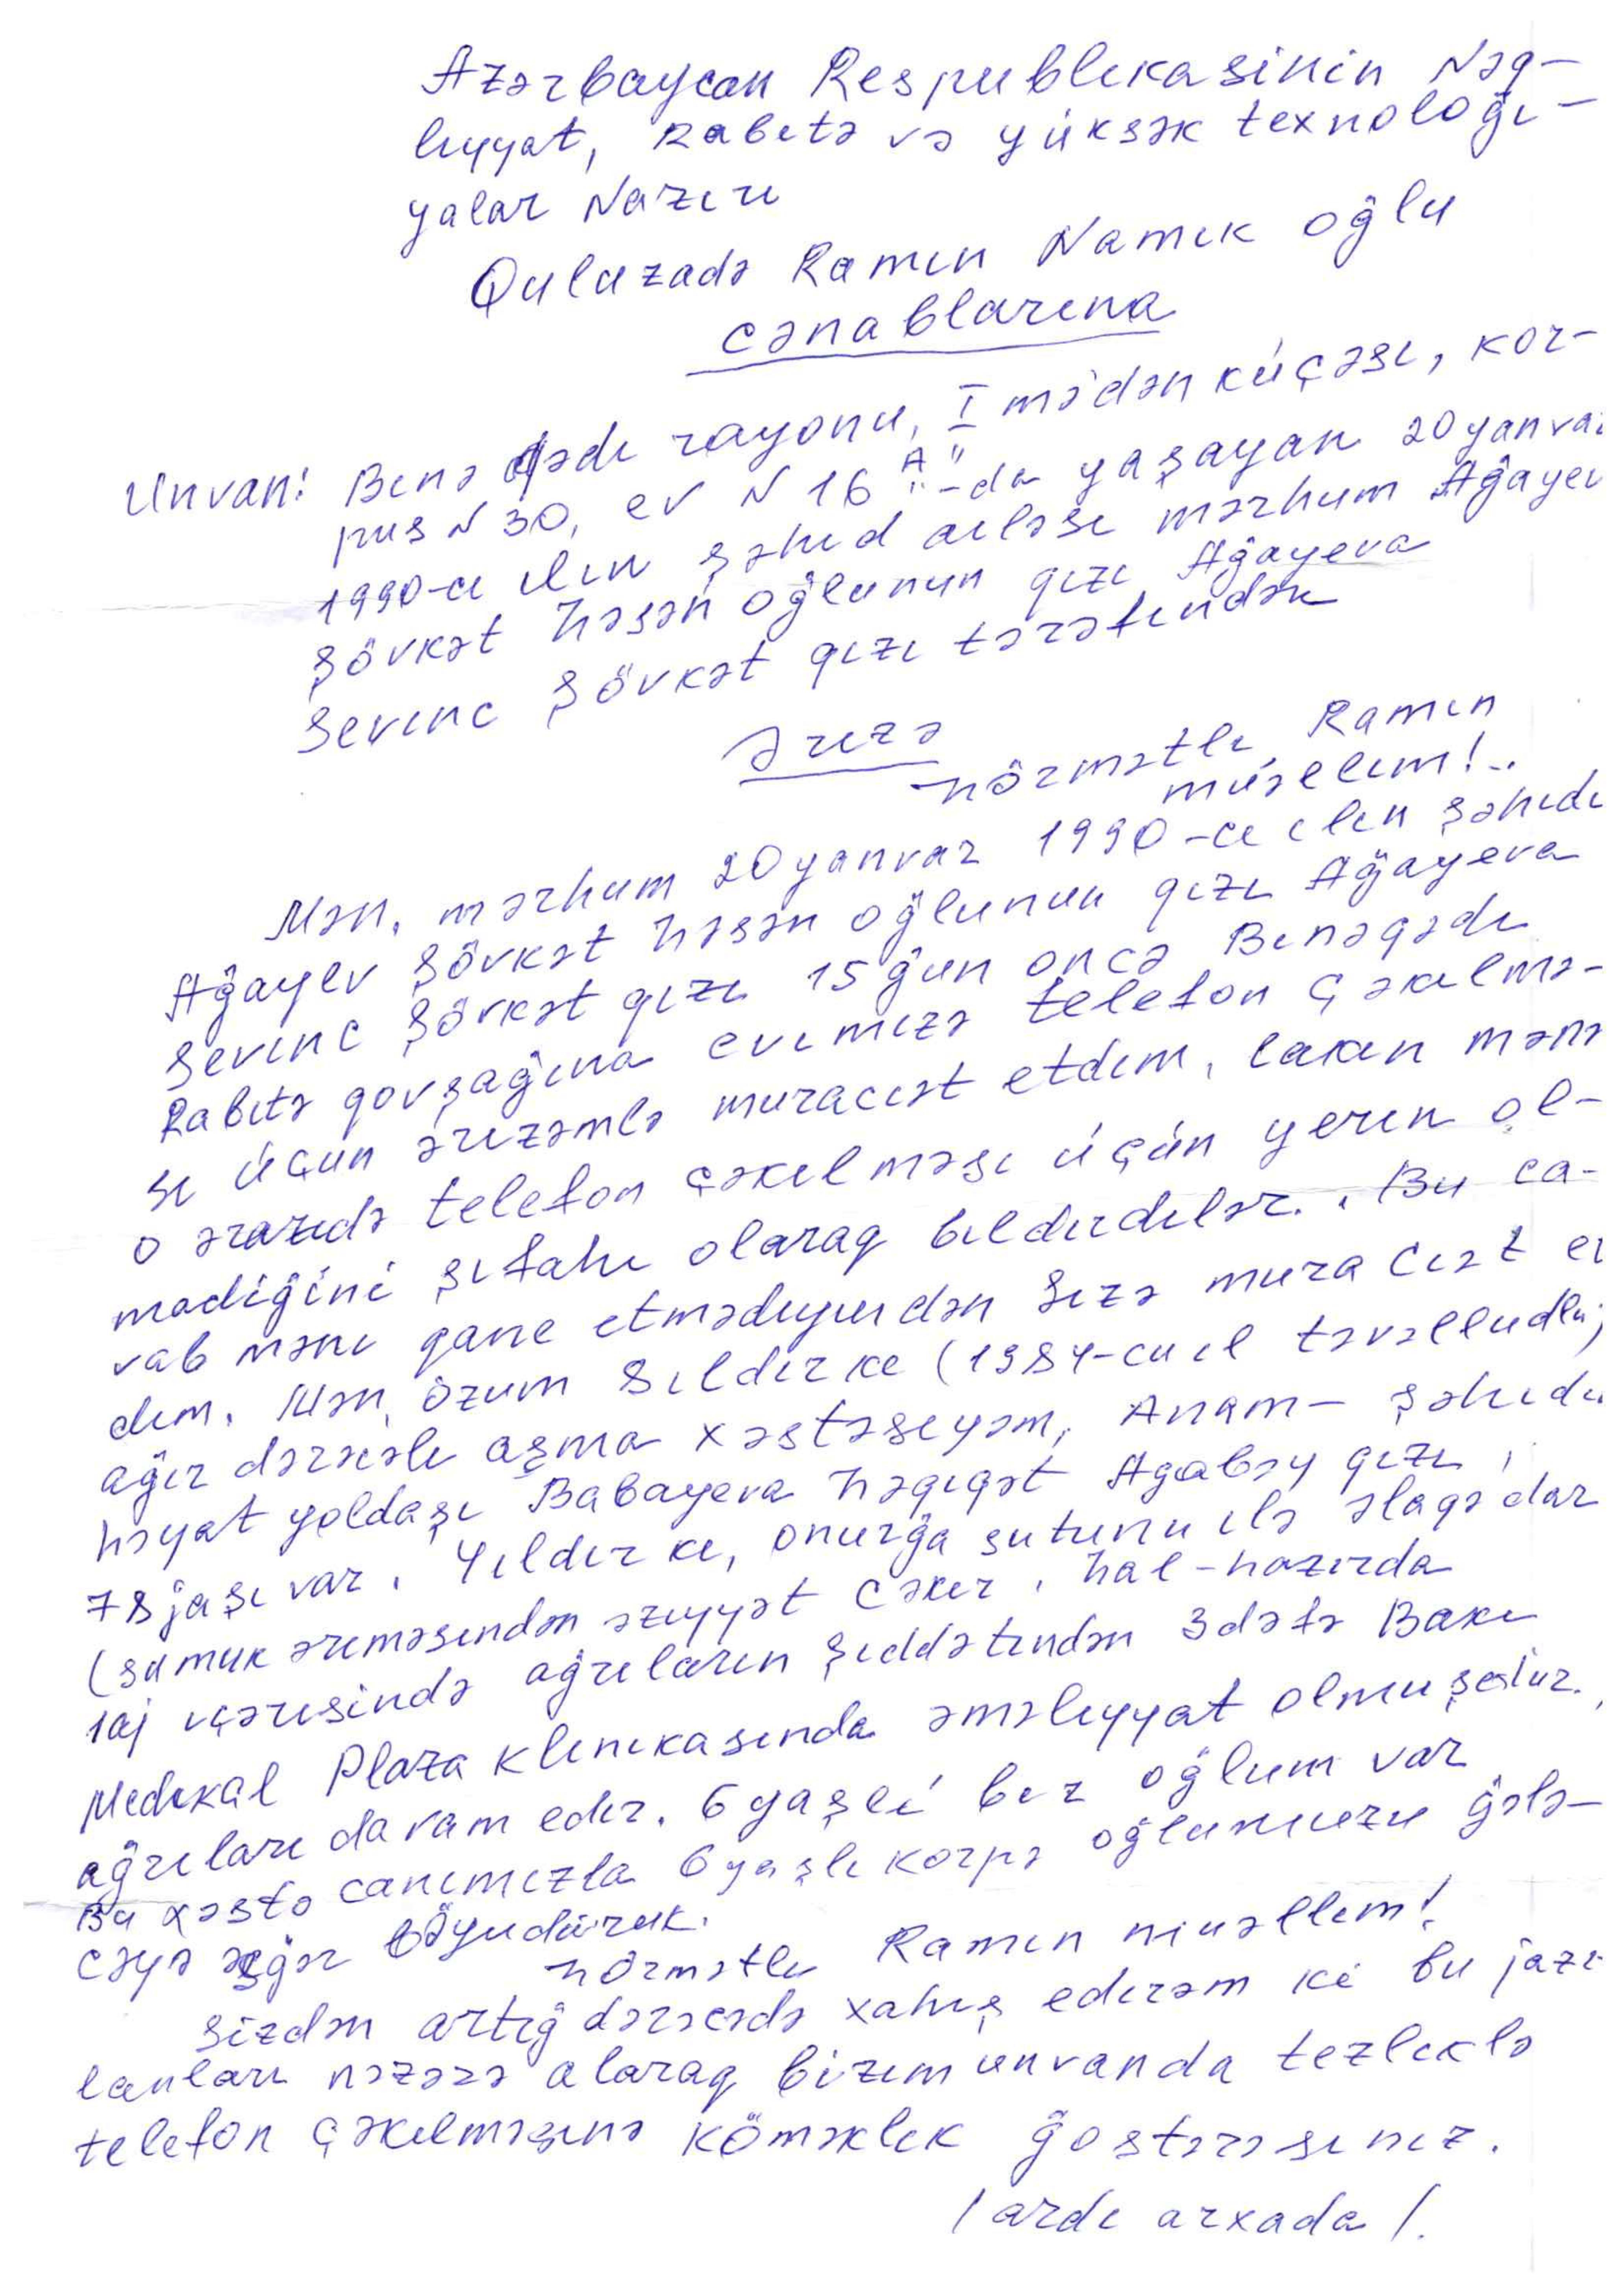 Azərbaycan Respublikasinin Nəq-
liyyat, Rabitə və yüksək texnoloği-
yalar Naziri
Quluzadə Ramin Namik oğlu
cənablarına
Unvan: Binə qədi rayonu, I mə'dən küçəsi, kor-
pus N 30, ev N 16 "A"-da yaşayan 20 yanvar
1990-cı ilin şəhid ailəsi mərhum Ağayev
Şövkət həsən oğlunun qızı Ağayeva
Sevinc Şövkət qızı tərəfindən
Ərizə
hörmətli Ramin
müəllim!..
Mən, mərhum 20 yanvar 1990-cı ilin şəhidi
Ağayev Şövkət həsən oğlunun qızı Ağayeva
Sevinc Şövkət qızı 15 ğun oncə Binəqədi
Rabitə qovşağına evimizə telefon çəkilmə-
si üçun ərizəmlə muraciət etdim, lakin mənə
o ərazidə telefon çəkilməsi üçün yerin ol-
madiğini şifahi olaraq bildirdilər.. Bu ca-
vab məni qane etmədiyindən Sizə muraciət e
dim. Mən, özum 8 ildir ke (1984-cu il təvəlludlu)
ağır dərəcəli aşma xəstəsiyəm, Anam- şəhidi
həyat yoldaşı Babayeva həqiqət Agabəy qızı,
78 jaşı var. 4 ildir ki, onurğa sutunu ilə əlaqədar
(sumuk əriməsindən əziyyət cəkir, hal-hazırda
1 aj içərisində ağrıların şiddətindən 3 dəfə Bakı
Medikal Plaza klinikasında əməliyyat olmuşdur.
ağrıları davam edir. 6 yaşlı bir oğlum var
Bu xəstə canımızla 6 yaşlı korpə oğlumuzu ğələ-
cəyə əsğər böyudürük.
hörmətli Ramin muəllim!
Sizdən artığ dərəcədə xahiş edirəm ki bu jazı
lanları nəzərə alaraq bizim unvanda tezliklə
telefon çəkilməsinə köməklik ğostərəsiniz.
/ ardı arxada /.